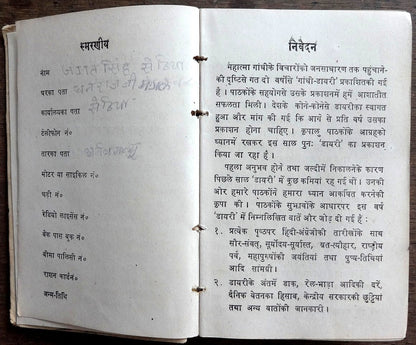 स्मरणीय
नाम जगत सिंह सेठिया
घरका पता
कार्यालयका पता सेठिया
टेलीफोन नं०
तारका पता
मोटर या साइकिल नं०
घड़ी नं०
रेडियो लाइसेंस नं०
बैंक पास बुक नं०
बीमा पालिसी नं०
राशन कार्ड नं०
जन्म-तिथि
निवेदन
महात्मा गांधीके विचारोंको जनसाधारण तक पहुंचाने-
की दृष्टिसे गत दो वर्षोंसे 'गांधी-डायरी' प्रकाशितकी गई
है । पाठकोंके सहयोगसे उसके प्रकाशनमें हमें आशातीत
सफलता मिली । देशके कोने-कोनेसे डायरीका स्वागत
हुआ और मांग की गई कि आगे से प्रति वर्ष उसका
प्रकाशन होना चाहिए । कृपालु पाठकोंके आग्रहको
ध्यानमें रखकर इस साल पुनः 'डायरी' का प्रकाशन
किया जा रहा है ।
पहला अनुभव होने तथा जल्दीमें निकालनेके कारण
पिछले साल 'डायरी' में कुछ कमियां रह गई थीं । उनकी
ओर हमारे पाठकोंने हमारा ध्यान आकर्षित करनेकी
कृपा की । पाठकोंके सुझावोंके आधारपर इस वर्ष
'डायरी' में निम्नलिखित बातें और जोड़ दी गई हैं :
१. प्रत्येक पृष्ठपर हिंदी-अंग्रेजी तारीखोंके साथ
सौर-संवत्, सूर्योदय-सूर्यास्त, व्रत-त्योहार, राष्ट्रीय
पर्व, महापुरुषोंकी जयंतियां तथा पुण्य-तिथियां
आदि सामग्री ।
२. डायरीके अंतमें डाक, रेल-भाड़ा आदिकी दरें,
दैनिक वेतनका हिसाब, केन्द्रीय सरकारकी छुट्टियां
तथा अन्य बातोंकी जानकारी ।